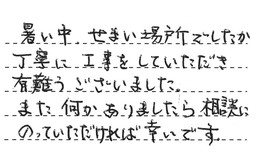 暑い中、せまい場所でしたか
丁寧に工事をしていただき
有難うございました。
また何かありましたら相談に
のっていただければ幸いです